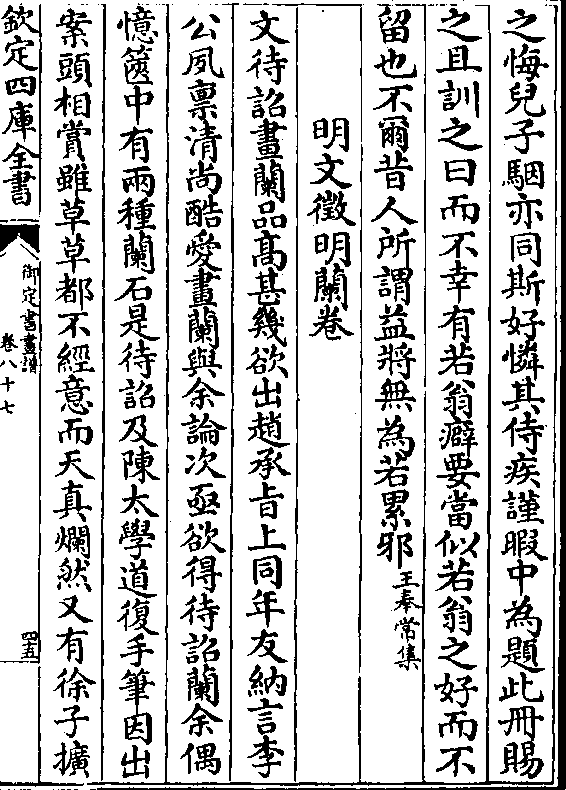 之悔兒子駰亦同斯好憐其侍疾謹暇中為題此冊賜
之且訓之曰而不幸有若翁癖要當似若翁之好而不
留也不爾昔人所謂益將無為若累邪王奉常集
明文徵明蘭卷
文待詔畫蘭品髙甚幾欲出趙承旨上同年友納言李
公夙禀清尚酷愛畫蘭與余論次亟欲得待詔蘭余偶
憶篋中有兩種蘭石是待詔及陳太學道復手筆因出
案頭相賞雖草草都不經意而天真爛然又有徐子擴
欽定四庫全書
御定書畫譜
卷八十七
四五